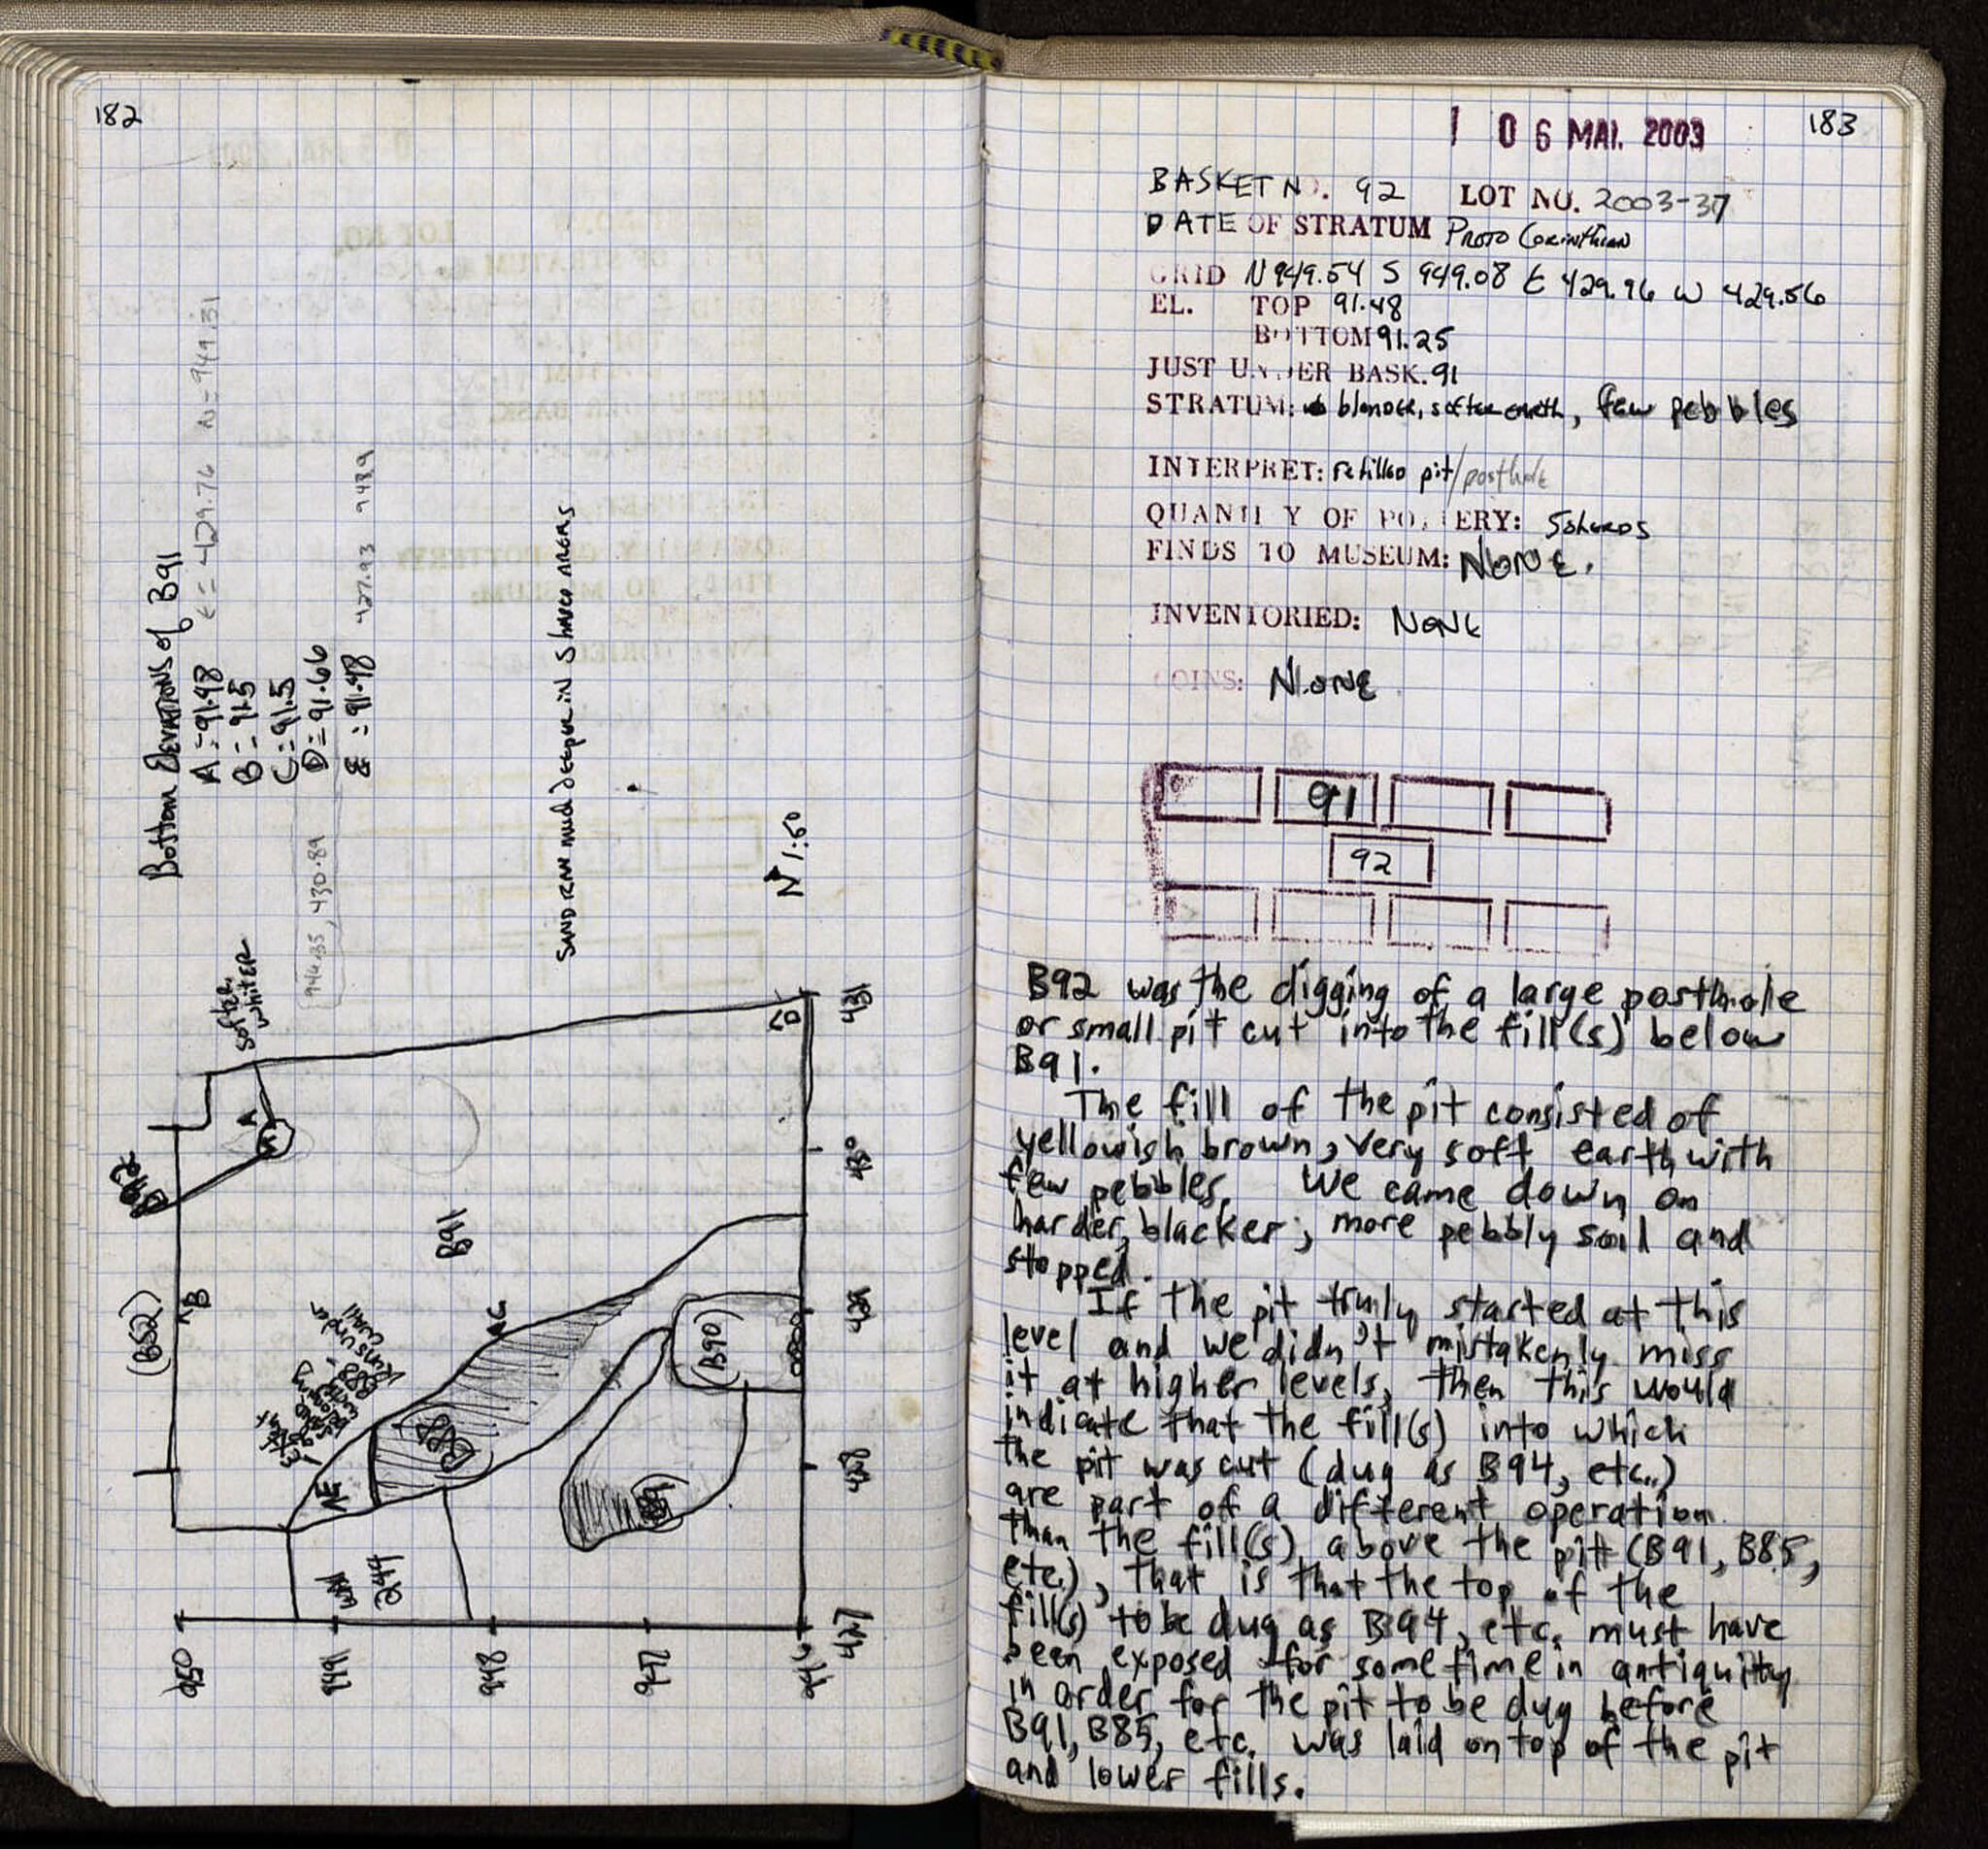 182
Bottom Elevations of B91
A = 91.48 E = 429.76 N = 949.31
B = 91.5
C = 91.5
D = 91.66
E = 91.48 427.93 9489
946.35, 430.89
SAND RAN mud deeper in shaded AREAS
N 1:50
softer, whiter
A
B92
(B52)
B
B91
C
D
(B90)
B88
B89
E
extent
of
B88 -
Runs under
wall
wall
244
431
430
429
428
427
950
949
948
947
946
183
1 06 MAI. 2003
BASKET NO. 92 LOT NO. 2003-37
DATE OF STRATUM Proto Corinthian
GRID N 949.54 S 949.08 E 429.96 W 429.56
EL. TOP 91.48
BOTTOM 91.25
JUST UNDER BASK. 91
STRATUM: blonder, softer earth, few pebbles
INTERPRET: refilled pit/posthole
QUANTITY OF POTTERY: 5 sherds
FINDS TO MUSEUM: NONE.
INVENTORIED: NONE
COINS: NONE
91
92
B92 was the digging of a large posthole
or small pit cut into the fill(s) below
B91.
The fill of the pit consisted of
yellowish brown, very soft earth with
few pebbles. We came down on
harder, blacker, more pebbly soil and
stopped.
If the pit truly started at this
level and we didn't mistakenly miss
it at higher levels, then this would
indicate that the fill(s) into which
the pit was cut (dug as B94, etc..)
are part of a different operation
than the fill(s) above the pit (B91, B85,
etc.), that is that the top of the
fill(s) to be dug as B94, etc. must have
been exposed for some time in antiquity
in order for the pit to be dug before
B91, B85, etc. was laid on top of the pit
and lower fills.